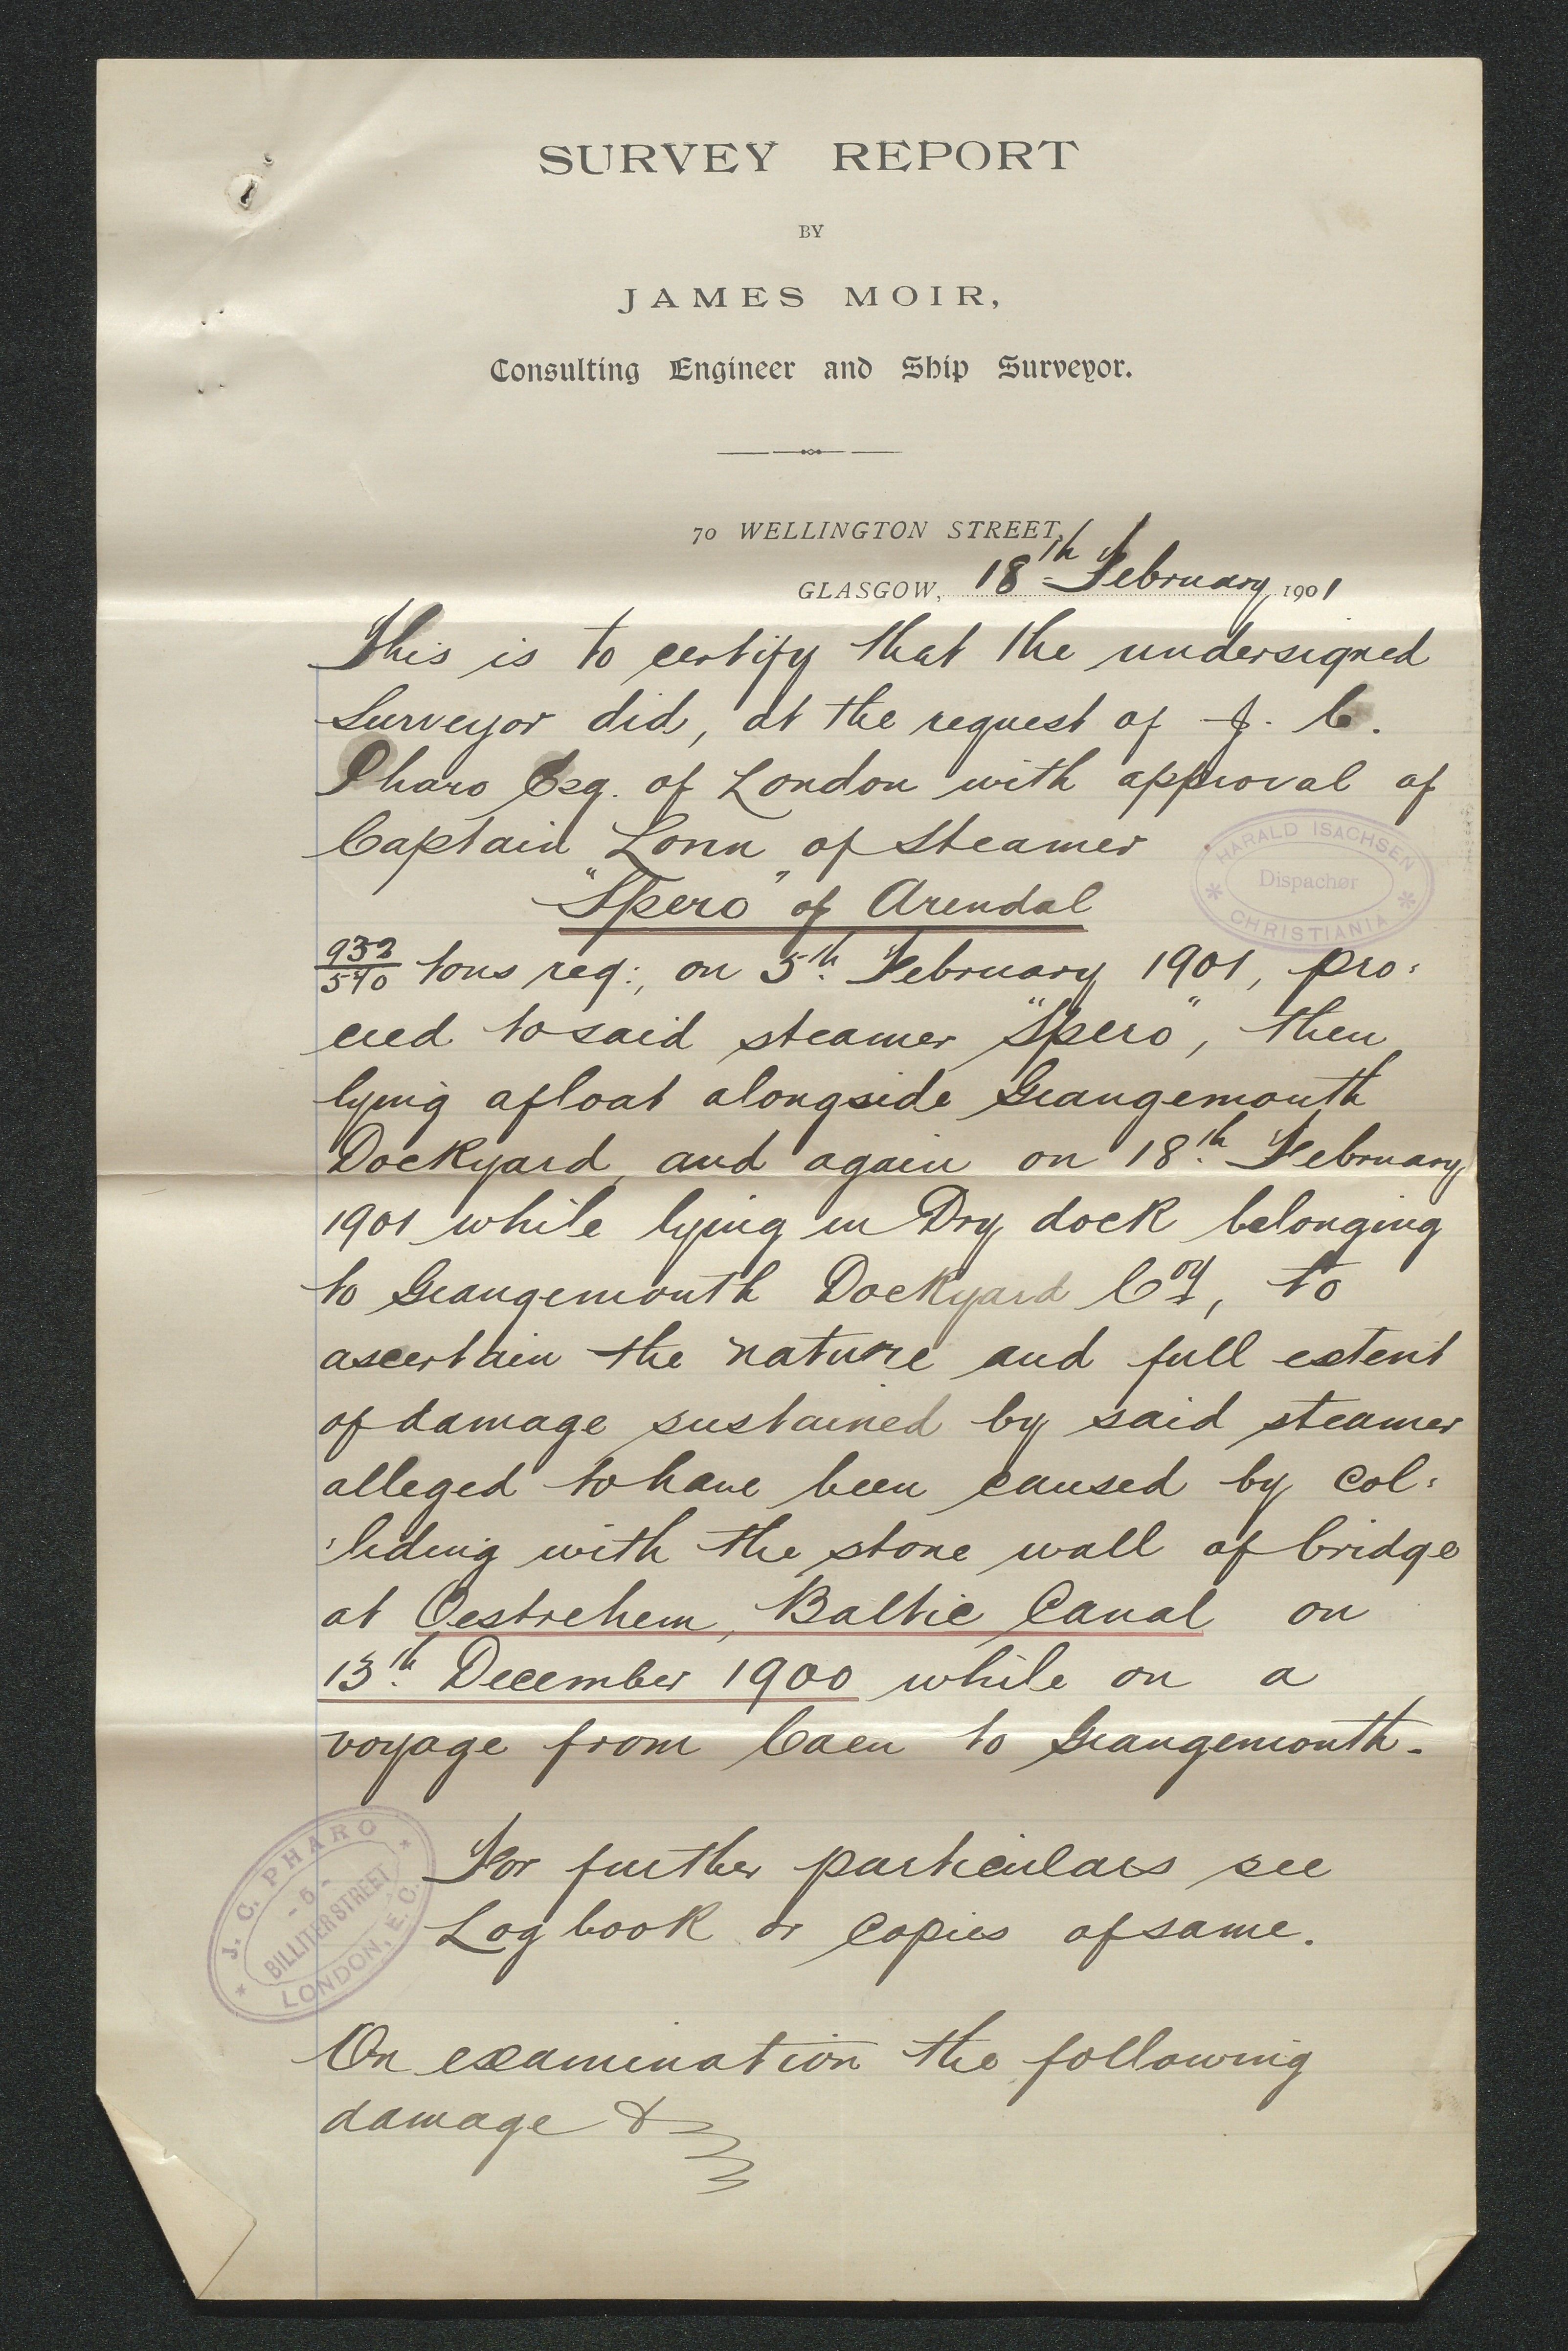 SURVEY REPORT
BY
JAMES MOIR,
Consulting Engineer and Ship Surveyor.
70 WELLINGTON STREET,
GLASGOW, 18th February 1901
This is to certify that the undersigned
Surveyor did, at the request of J. C.
Pharo Esq. of London with approval of
Captain Lonn of Steamer
"Spero" of Arendal
932/540 tons reg:, on 5th February 1901, pro:
ceed to said steamer "Spero", then
lying afloat alongside Grangemouth
Dockyard, and again on 18th February
1901 while lying in Dry dock belonging
to Grangemouth Dockyard Coy, to
ascertain the nature and full extent
of damage sustained by said steamer
alleged to have been caused by col:
:liding with the stone wall of bridge
at Oestrehem, Baltic Canal on
13th December 1900 while on a
voyage from Caen to Grangemouth.
For further particulars see
Log book or Copies of same.
On examination the following
damage &
HARALD ISACHSEN
Dispachør
CHRISTIANIA
J. C. PHARO
- 5 -
BILLITER STREET
LONDON, E.C.